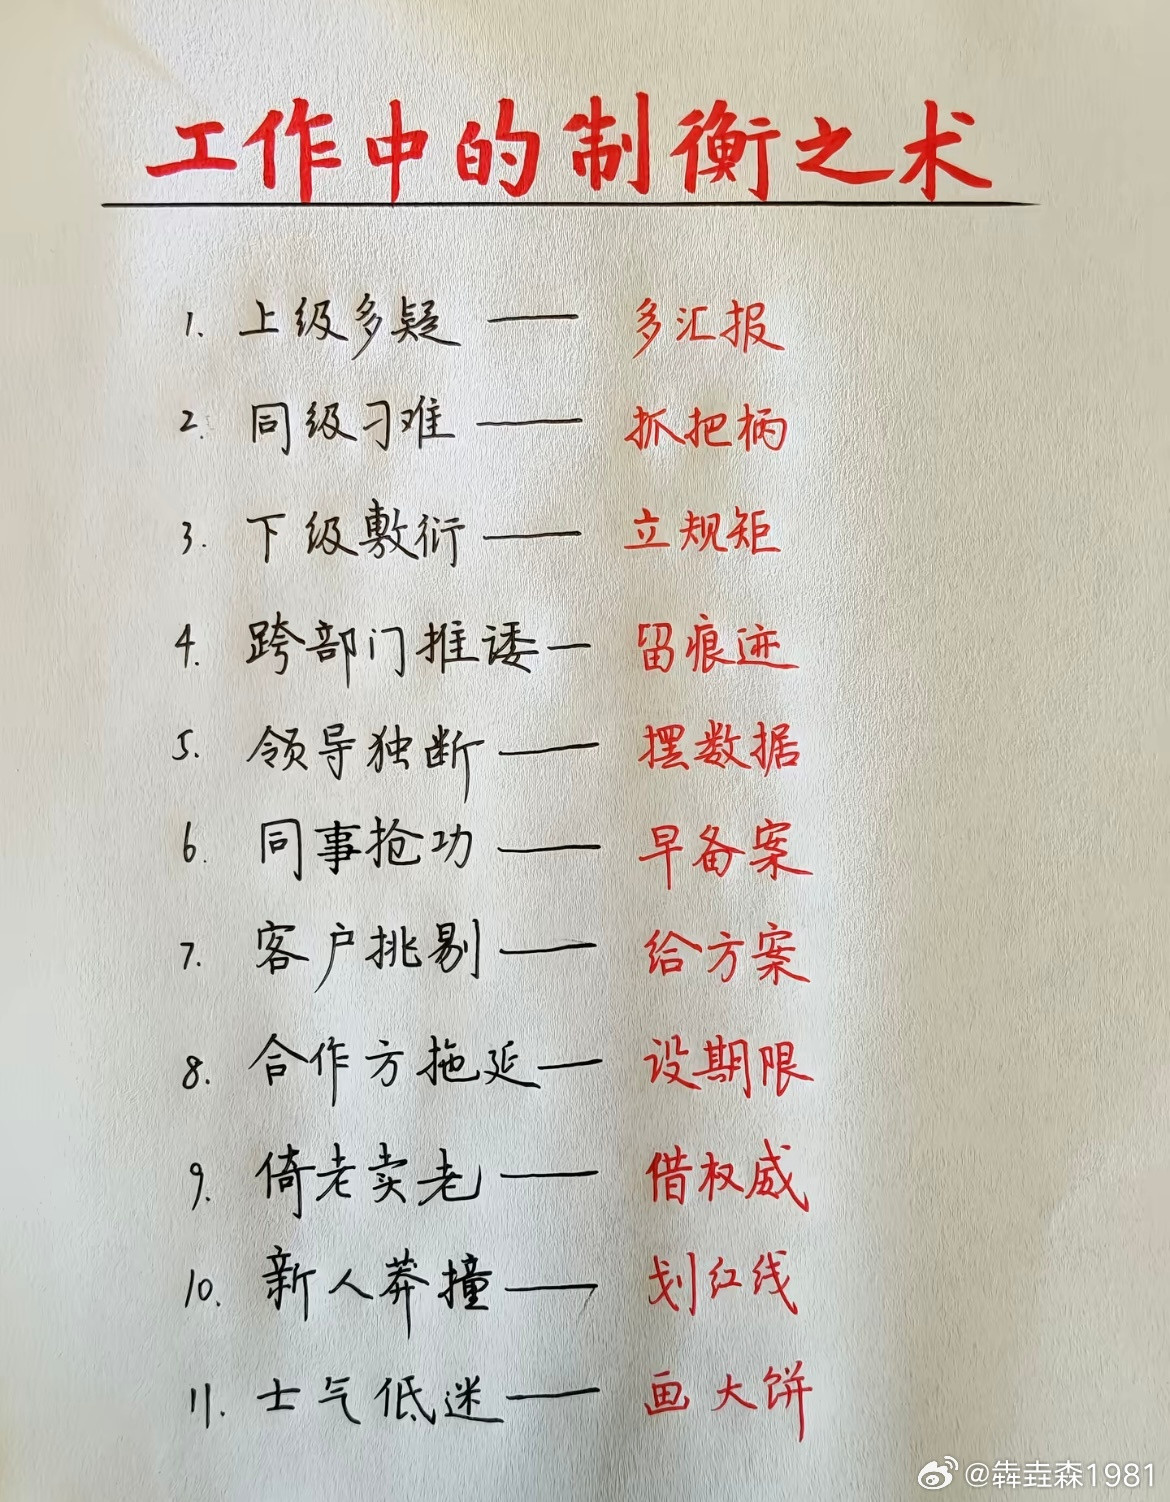 工作中的制衡之术
1. 上级多疑 —— 多汇报
2. 同级刁难 —— 抓把柄
3. 下级敷衍 —— 立规矩
4. 跨部门推诿 — 留痕迹
5. 领导独断 —— 摆数据
6. 同事抢功 —— 早备案
7. 客户挑剔 —— 给方案
8. 合作方拖延 — 设期限
9. 倚老卖老 —— 借权威
10. 新人莽撞 —— 划红线
11. 士气低迷 —— 画大饼
@犇垚森1981